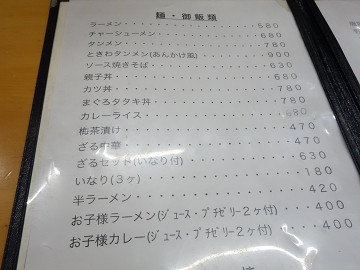 麺・御飯類
ラーメン・・・・・・・・・・・・・・・・580
チャーシューメン・・・・・・・・・・・・680
タンメン・・・・・・・・・・・・・・・・780
ときわタンメン(あんかけ風)・・・・・・・900
ソース焼きそば・・・・・・・・・・・・・630
親子丼・・・・・・・・・・・・・・・・・680
カツ丼・・・・・・・・・・・・・・・・・780
まぐろタタキ丼・・・・・・・・・・・・・780
カレーライス・・・・・・・・・・・・・・580
梅茶漬け・・・・・・・・・・・・・・・・470
ざる中華・・・・・・・・・・・・・・・・470
ざるセット(いなり付)・・・・・・・・・・630
いなり(3ヶ)・・・・・・・・・・・・・・180
半ラーメン・・・・・・・・・・・・・・・420
お子様ラーメン(ジュース・プチゼリー2ヶ付)・・・400
お子様カレー(ジュース・プチゼリー2ヶ付)・・・・400